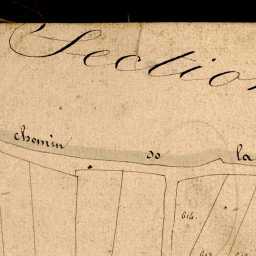 Section
chemin de la
614.